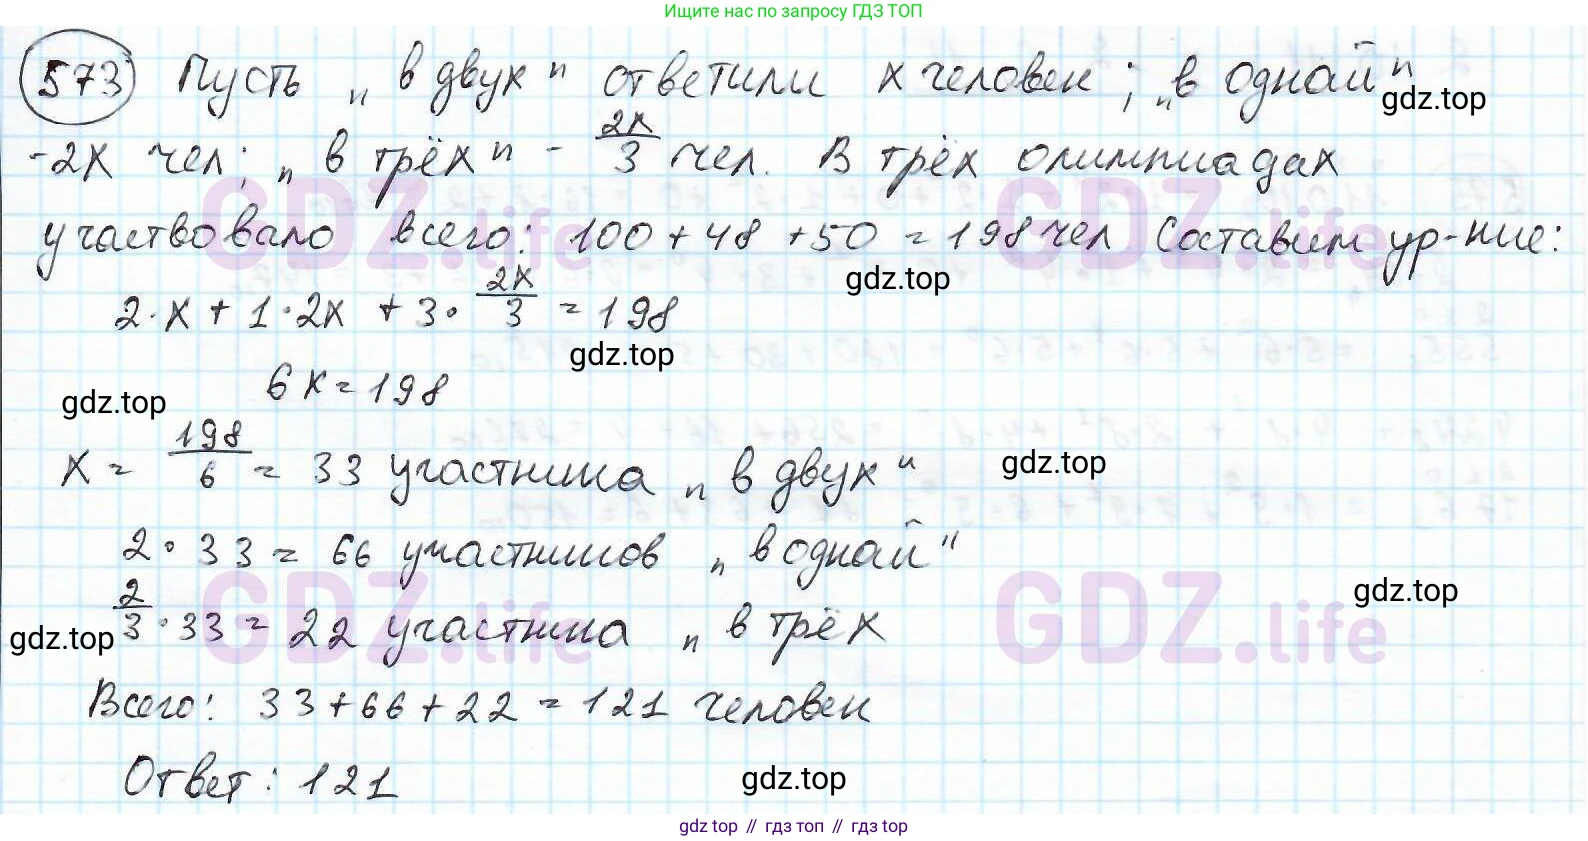 Ищите нас по запросу ГДЗ ТОП
573 Пусть „в двух" ответили x человек; „в одной"
gdz.top
-2x чел; „в трёх" - 2x/3 чел. В трёх олимпиадах
GDZ.life GDZ.life
участвовало всего: 100 + 48 + 50 = 198 чел. Составим ур-ние:
gdz.top
2·x + 1·2x + 3·2x/3 = 198
gdz.top
6x = 198
gdz.top
x = 198/6 = 33 участника „в двух"
gdz.top
2·33 = 66 участников „в одной"
GDZ.life GDZ.life
gdz.top
2/3·33 = 22 участника „в трёх
gdz.top
Всего: 33 + 66 + 22 = 121 человек
Ответ: 121
gdz.top
gdz.top // гдз топ // гдз top